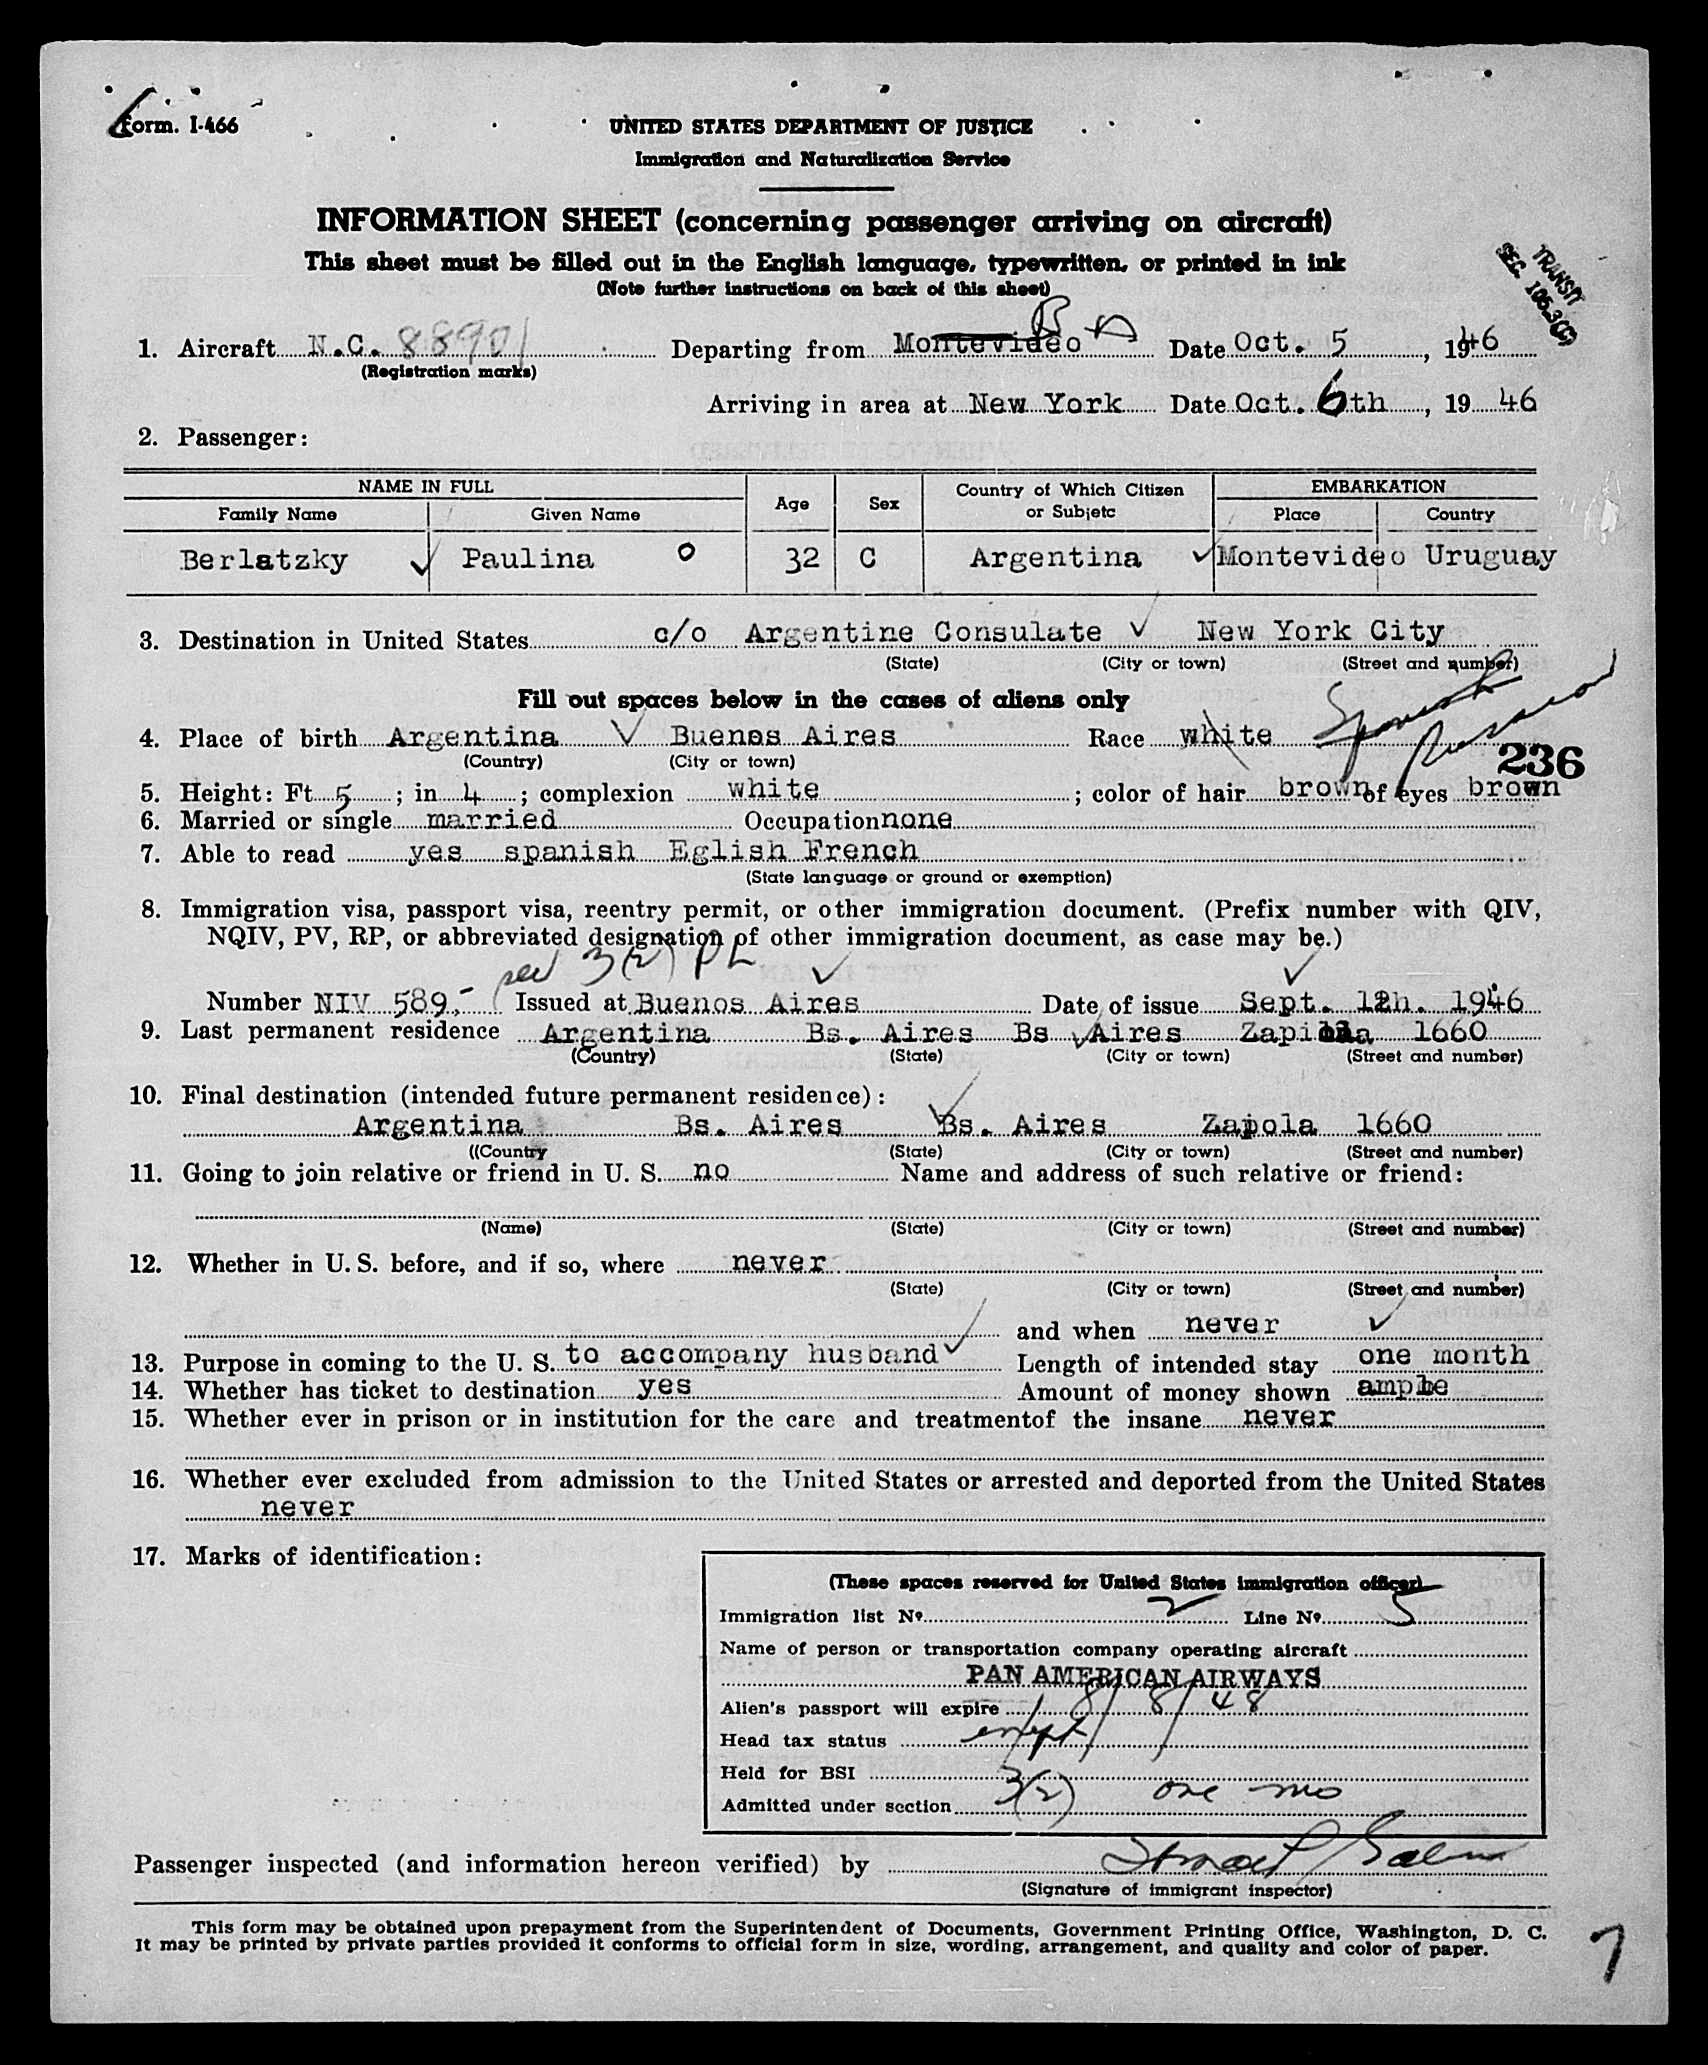 Form. I-466
UNITED STATES DEPARTMENT OF JUSTICE
Immigration and Naturalization Service
INFORMATION SHEET (concerning passenger arriving on aircraft)
This sheet must be filled out in the English language, typewritten, or printed in ink
(Note further instructions on back of this sheet)
TRANSIT
SEC. 105.3(C)
B A
1. Aircraft N.C. 88901 Departing from Montevideo Date Oct. 5, 1946
(Registration marks)
Arriving in area at New York Date Oct. 6th, 19 46
2. Passenger:
NAME IN FULL Age Sex Country of Which Citizen or Subjetc EMBARKATION
Family Name Given Name Place Country
Berlatzky ✓ Paulina O 32 C Argentina ✓ Montevideo Uruguay
3. Destination in United States c/o Argentine Consulate ✓ New York City
(State) (City or town) (Street and number)
Fill out spaces below in the cases of aliens only
4. Place of birth Argentina ✓ Buenos Aires Race white Spanish Russian
(Country) (City or town)
236
5. Height: Ft. 5; in 4; complexion white; color of hair brown of eyes brown
6. Married or single married Occupation none
7. Able to read yes spanish Eglish French
(State language or ground or exemption)
8. Immigration visa, passport visa, reentry permit, or other immigration document. (Prefix number with QIV,
NQIV, PV, RP, or abbreviated designation of other immigration document, as case may be.)
sec 3(2) PL
Number NIV 589,- Issued at Buenos Aires ✓ Date of issue Sept. 12h. 1946 ✓
9. Last permanent residence Argentina Bs. Aires Bs ✓ Aires Zapiola 1660
(Country) (State) (City or town) (Street and number)
10. Final destination (intended future permanent residence):
Argentina Bs. Aires ✓ Bs. Aires Zapiola 1660
((Country (State) (City or town) (Street and number)
11. Going to join relative or friend in U. S. no Name and address of such relative or friend:
(Name) (State) (City or town) (Street and number)
12. Whether in U. S. before, and if so, where never
(State) (City or town) (Street and number)
and when never ✓
13. Purpose in coming to the U. S. to accompany husband ✓ Length of intended stay one month
14. Whether has ticket to destination yes Amount of money shown ample
15. Whether ever in prison or in institution for the care and treatmentof the insane never
16. Whether ever excluded from admission to the United States or arrested and deported from the United States
never
17. Marks of identification:
(These spaces reserved for United States immigration officer)
Immigration list Nº 2 Line Nº 5
Name of person or transportation company operating aircraft
PAN AMERICAN AIRWAYS
Alien's passport will expire 8/8/48
Head tax status exempt
Held for BSI
Admitted under section 3(2) one mo
Passenger inspected (and information hereon verified) by
(Signature of immigrant inspector)
This form may be obtained upon prepayment from the Superintendent of Documents, Government Printing Office, Washington, D. C.
It may be printed by private parties provided it conforms to official form in size, wording, arrangement, and quality and color of paper.
7